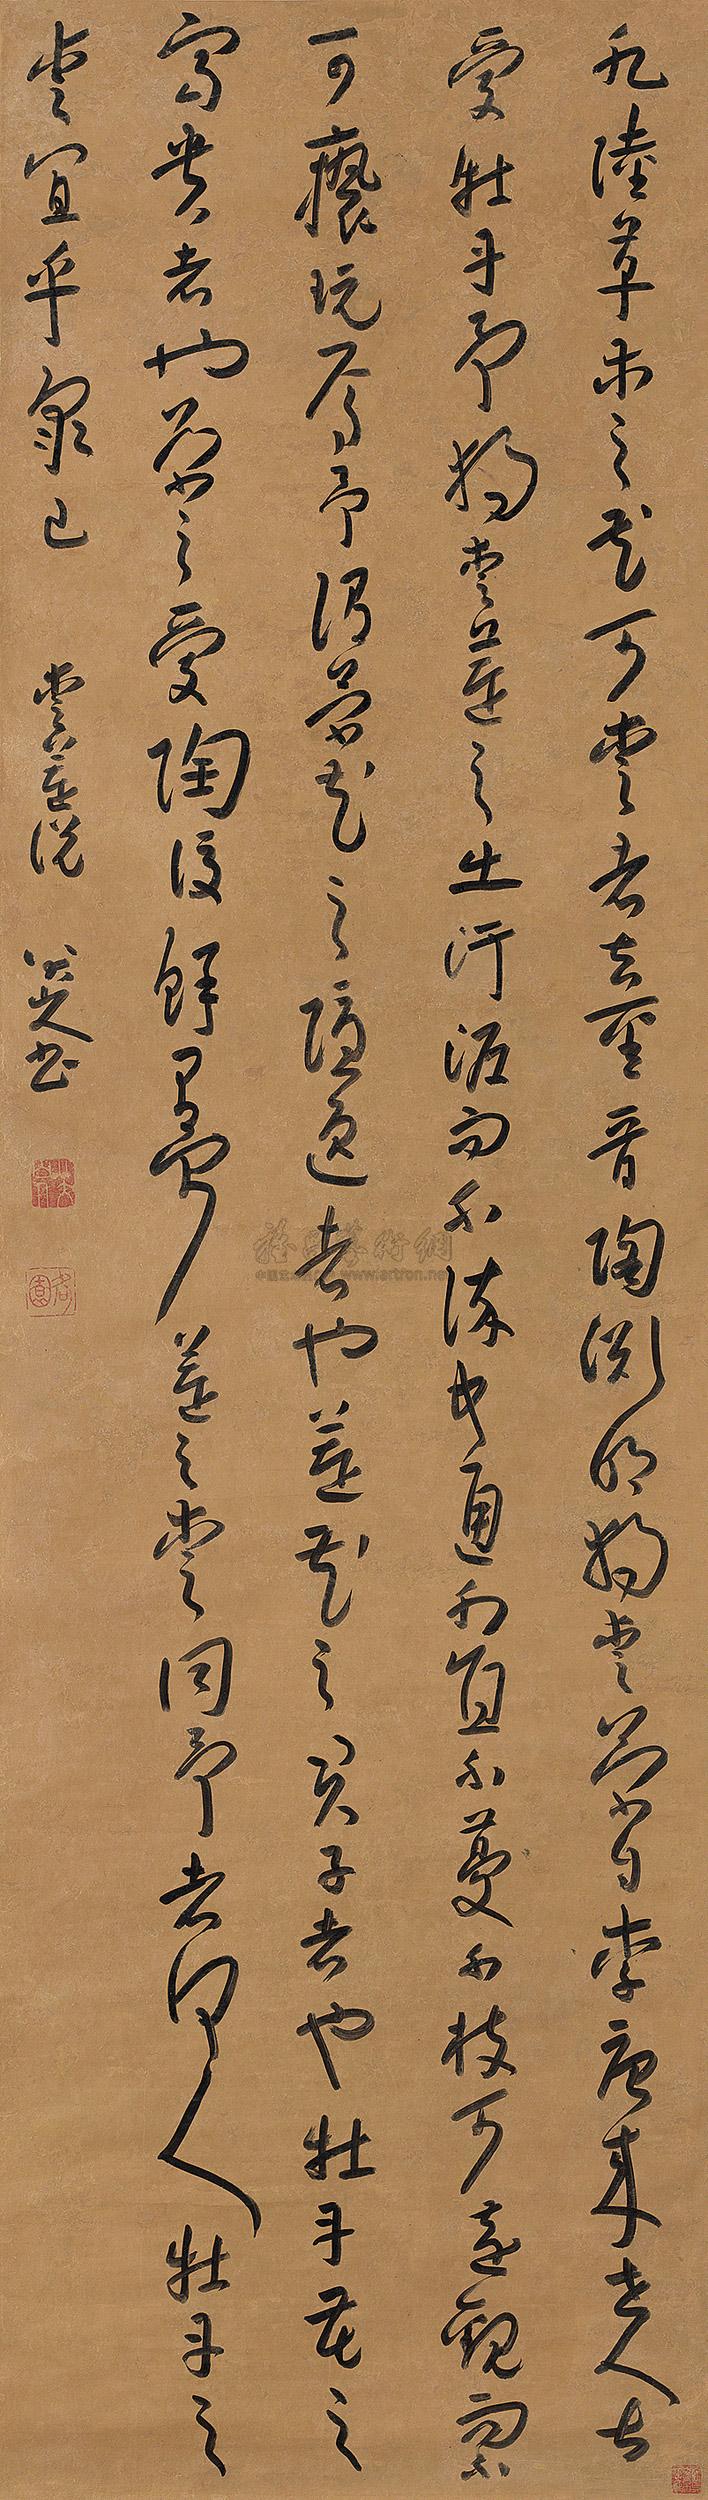 凡陸草木之花可愛者甚蕃晉陶淵明獨愛菊自李唐來世人甚
愛牡丹予獨愛蓮之出汙泥而不染中通外直不蔓不枝可遠觀而不
可褻玩焉予謂菊花之隱逸者也蓮花之君子者也牡丹花之
富貴者也菊之愛陶後鮮有聞蓮之愛同予者何人牡丹之
愛宜乎眾已 愛蓮說 八大山人書
何園
雅昌藝術網
www.artron.net